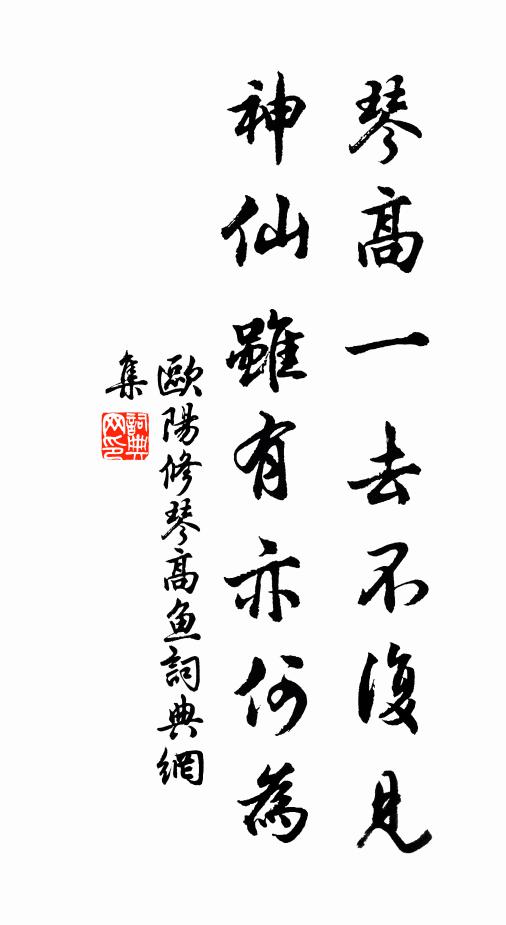 琴高一去不復見
神仙雖有亦何為
歐陽修琴高魚詞典網
集
詞典
网印